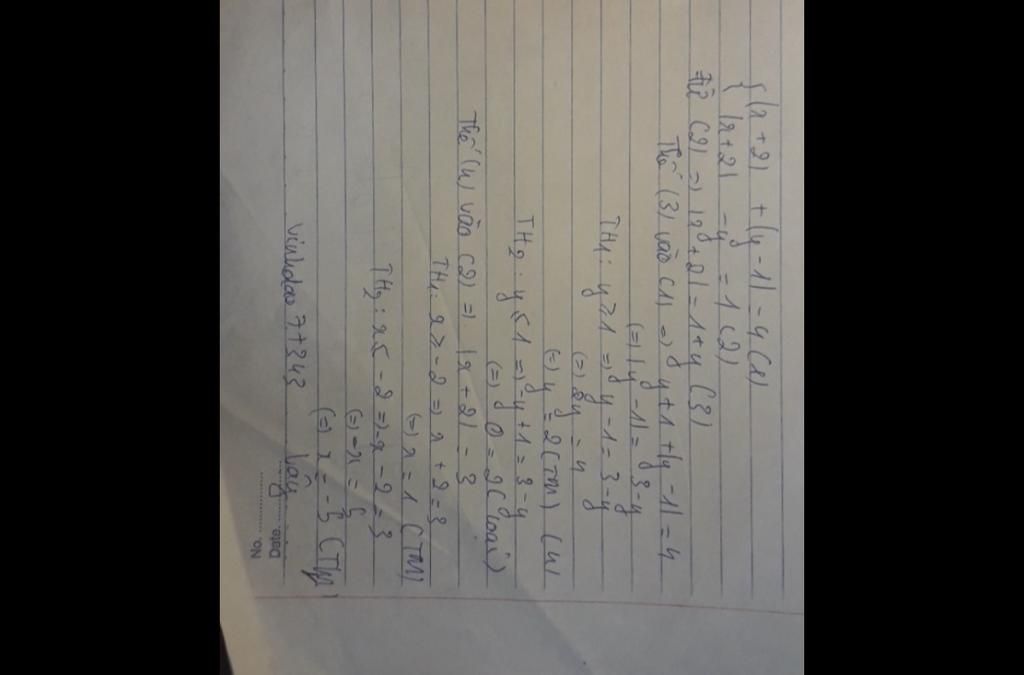 { |x + 2| + |y - 1| = 4 (1)
|x + 2| - y = 1 (2)
Từ (2) => |x + 2| = 1 + y (3)
Thế (3) vào (1) => y + 1 + |y - 1| = 4
(=) |y - 1| = 3 - y
TH1: y ≥ 1 => y - 1 = 3 - y
(=) 2y = 4
(=) y = 2 (TM) (4)
TH2: y ≤ 1 => -y + 1 = 3 - y
(=) 0 = 2 (loại)
Thế (4) vào (2) => |x + 2| = 3
TH1: x ≥ -2 => x + 2 = 3
(=) x = 1 (TM)
TH2: x ≤ -2 => -x - 2 = 3
(=) -x = 5
(=) x = -5 (TM)
vinhdao7+343 Vậy
No.
Date.